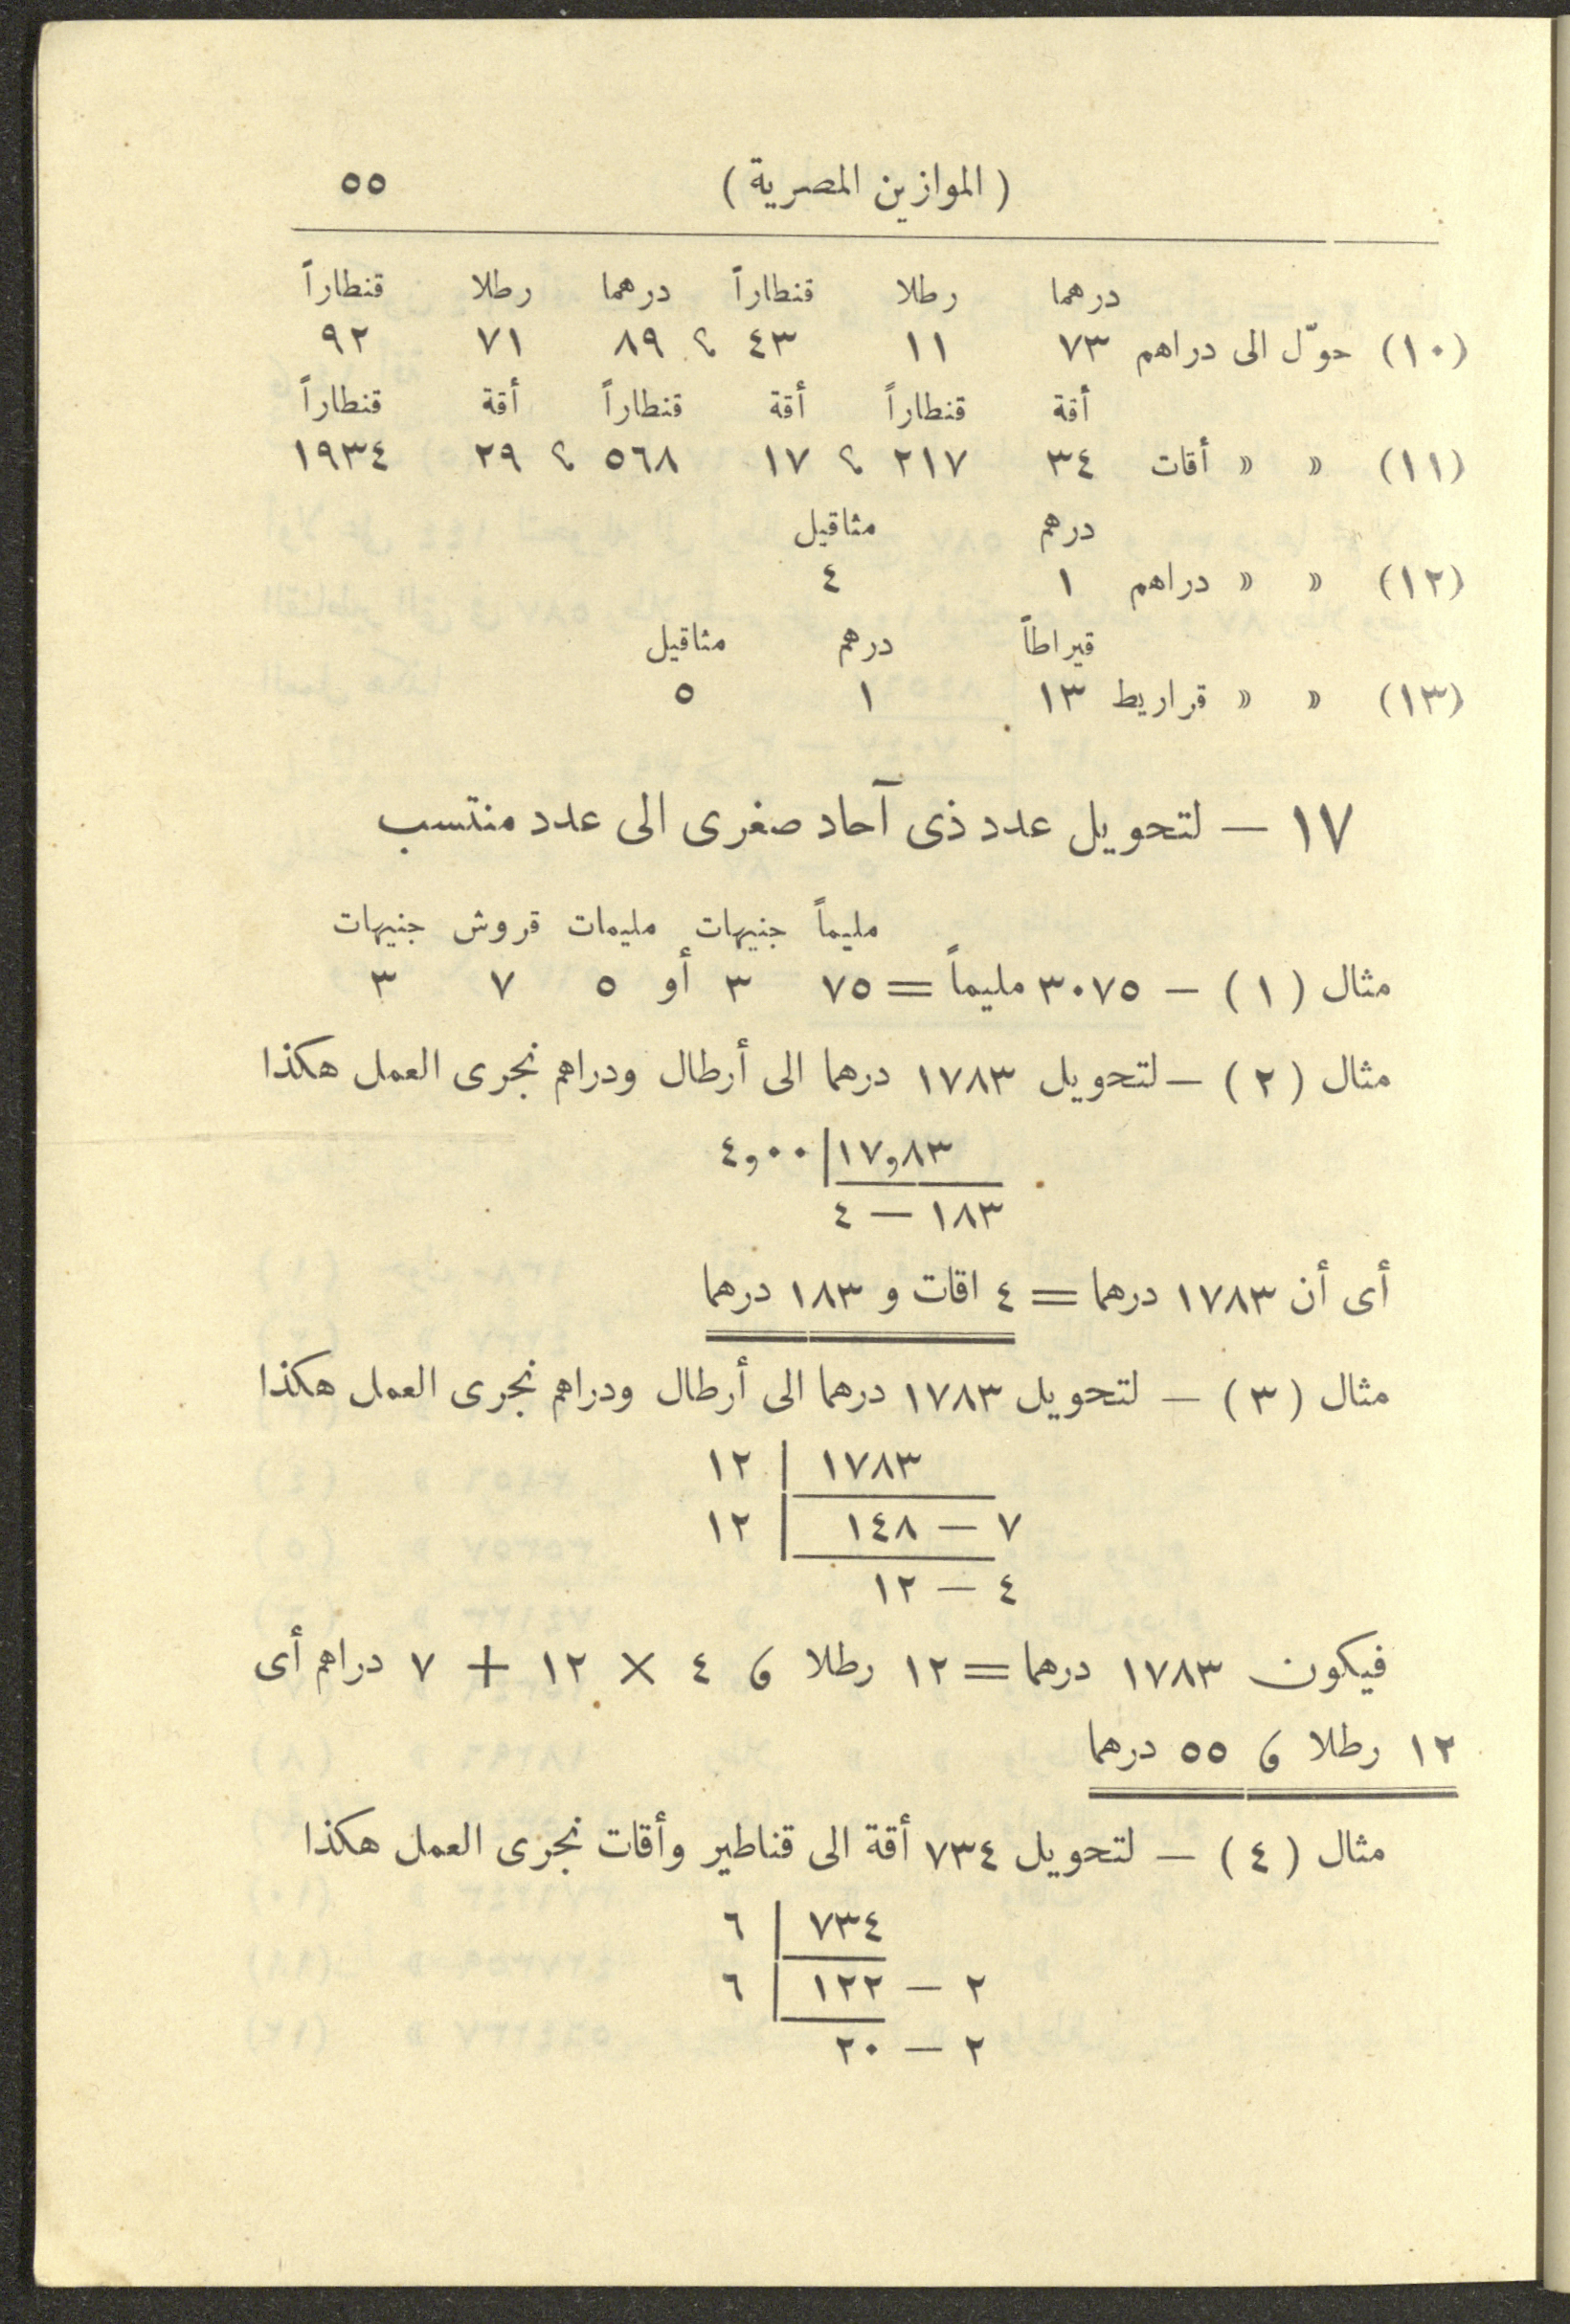 ( الموازين المصرية ) ٥٥
درهما رطلا قنطاراً درهما رطلا قنطاراً
(١٠) حوّل الى دراهم ٧٣ ١١ ٤٣ ؟ ٨٩ ٧١ ٩٢
أقة قنطاراً أقة قنطاراً أقة قنطاراً
(١١) » » أقات ٣٤ ٢١٧ ؟ ١٧ ٥٦٨ ؟ ٢٩ ١٩٣٤
درهم مثاقيل
(١٢) » » دراهم ١ ٤
قيراطاً درهم مثاقيل
(١٣) » » قراريط ١٣ ١ ٥
١٧ — لتحويل عدد ذى آحاد صغرى الى عدد منتسب
مليماً جنيهات مليمات قروش جنيهات
مثال (١) — ٣٠٧٥ مليماً = ٧٥ ٣ أو ٥ ٧ ٣
مثال (٢) — لتحويل ١٧٨٣ درهما الى أرطال ودراهم نجرى العمل هكذا
١٧,٨٣ | ٤,٠٠
١٨٣ — ٤
أى أن ١٧٨٣ درهما = ٤ اقات و ١٨٣ درهما
مثال (٣) — لتحويل ١٧٨٣ درهما الى أرطال ودراهم نجرى العمل هكذا
١٧٨٣ | ١٢
٧ — ١٤٨ | ١٢
٤ — ١٢
فيكون ١٧٨٣ درهما = ١٢ رطلا و ٤ × ١٢ + ٧ دراهم أى
١٢ رطلا و ٥٥ درهما
مثال (٤) — لتحويل ٧٣٤ أقة الى قناطير وأقات نجرى العمل هكذا
٧٣٤ | ٦
٢ — ١٢٢ | ٦
٢ — ٢٠